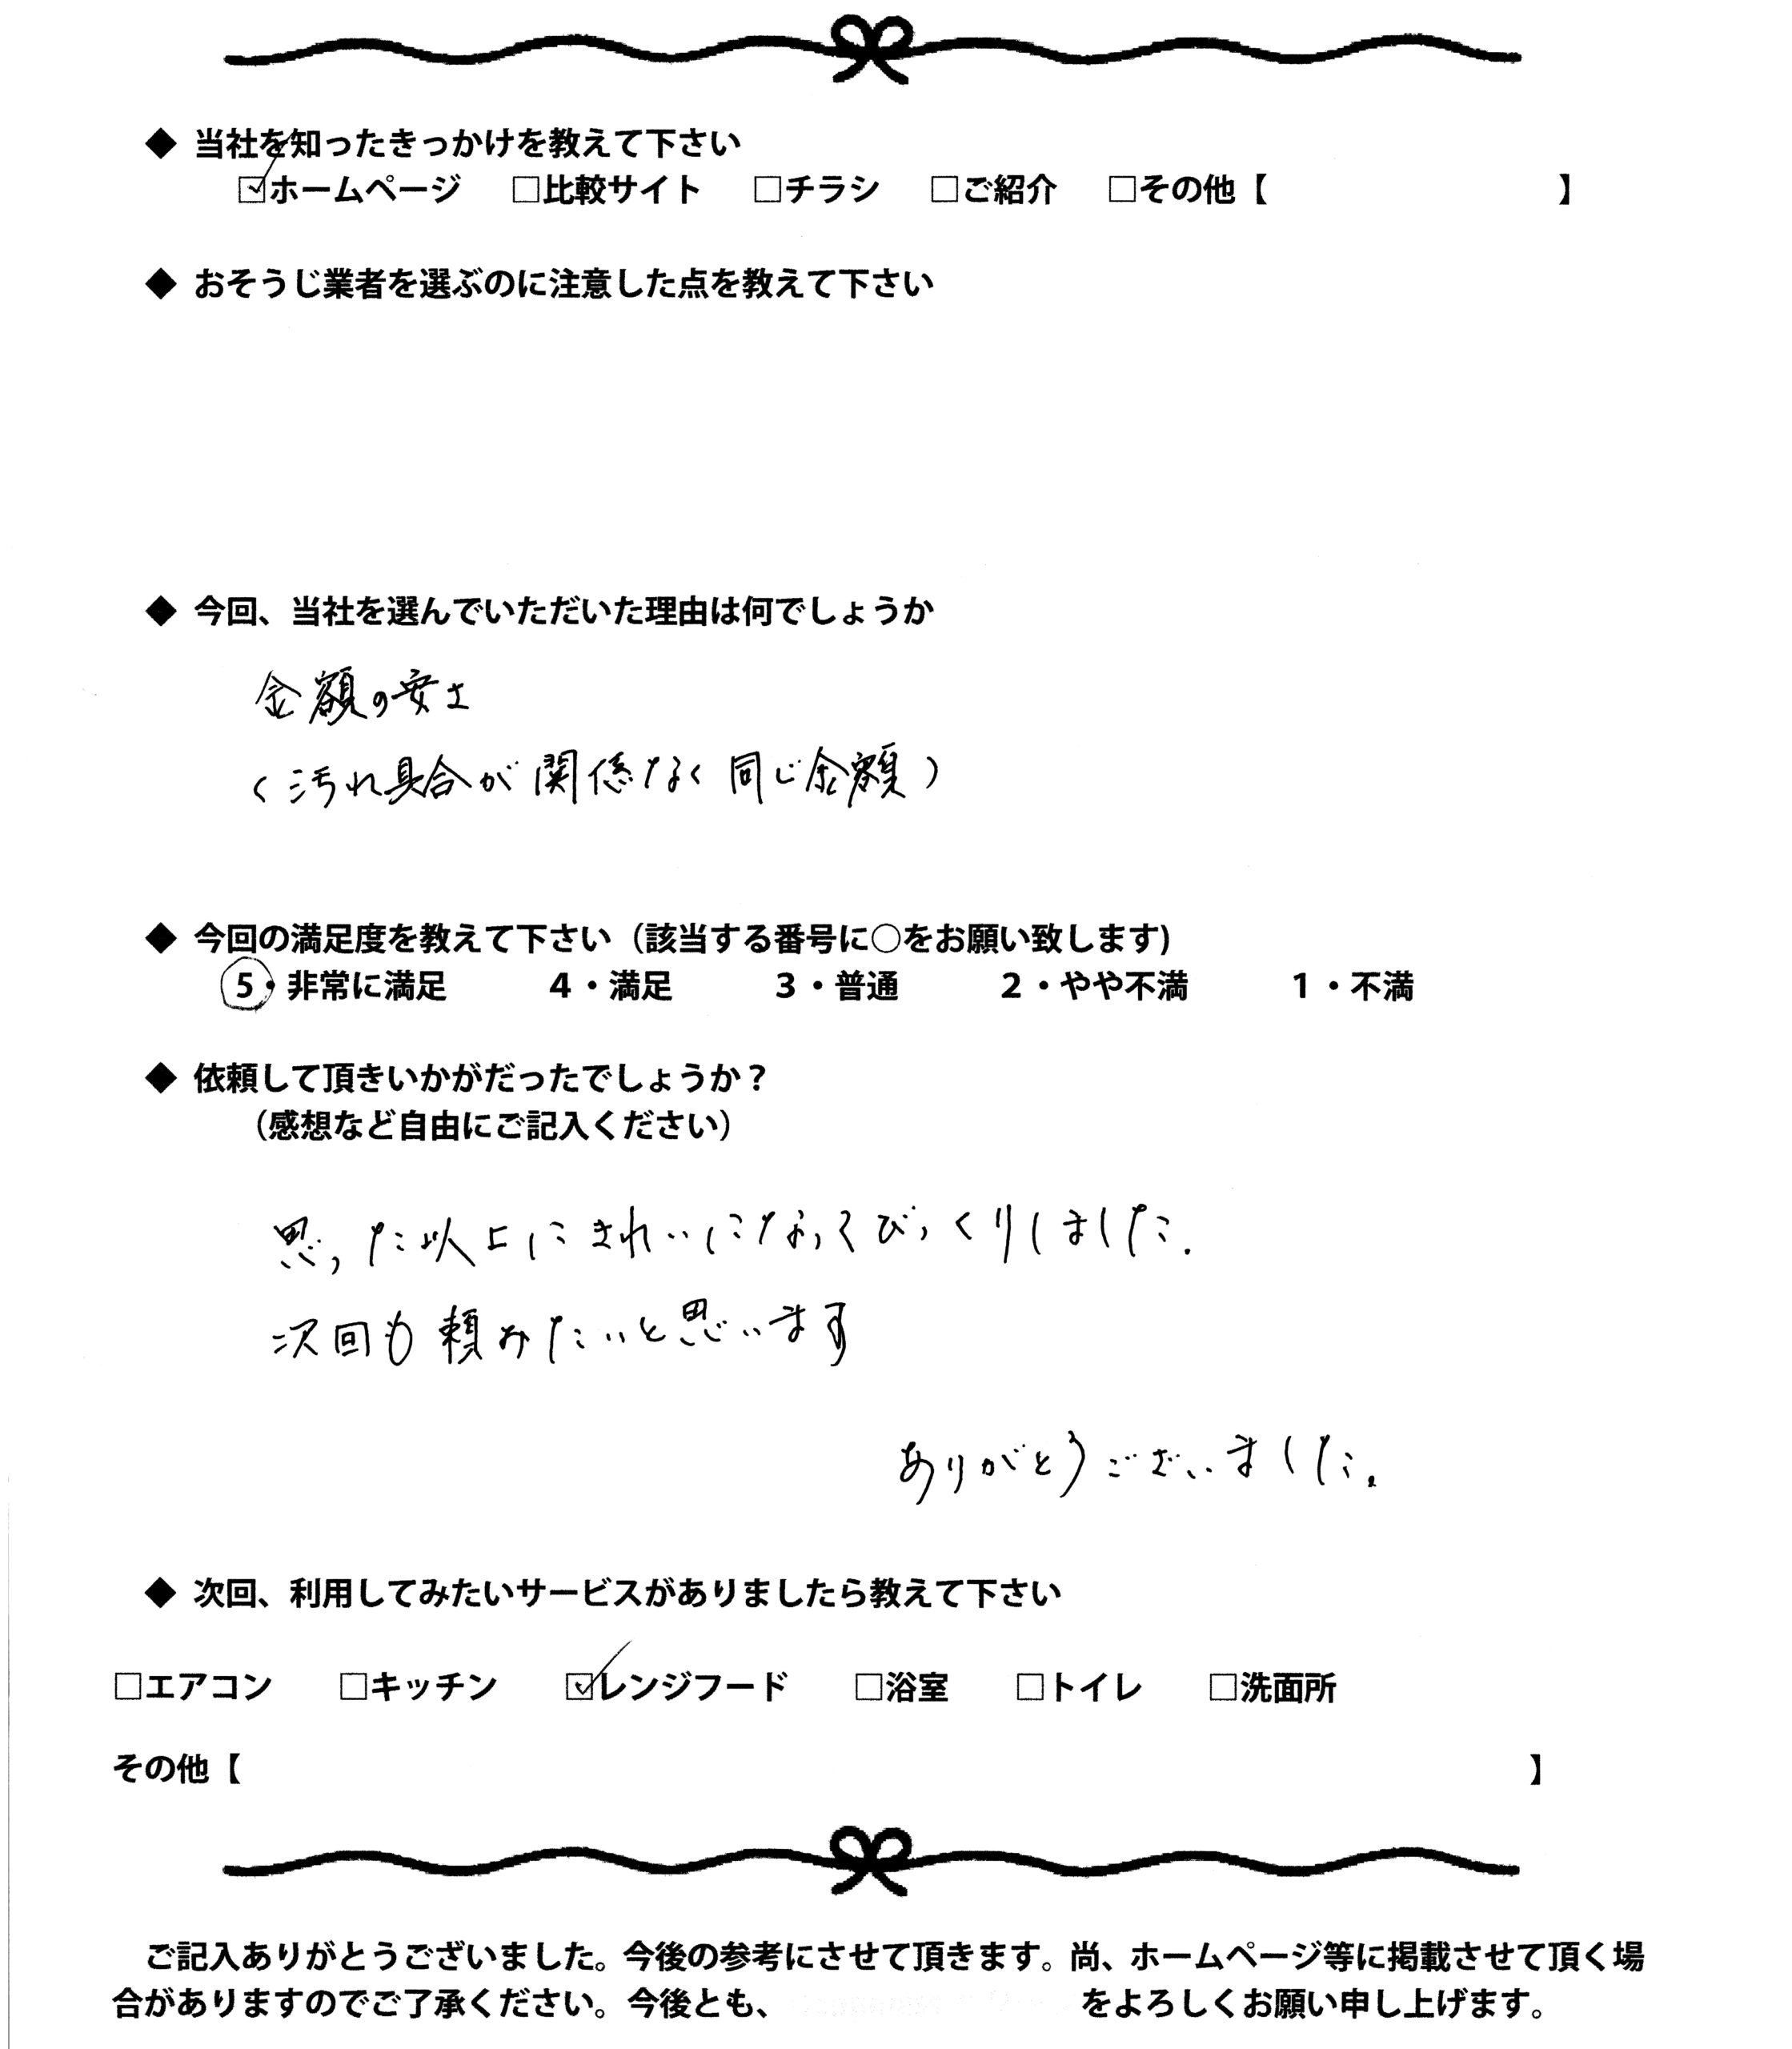 ◆ 当社を知ったきっかけを教えて下さい
☑ホームページ □比較サイト □チラシ □ご紹介 □その他【 】
◆ おそうじ業者を選ぶのに注意した点を教えて下さい
◆ 今回、当社を選んでいただいた理由は何でしょうか
金額の安さ
(汚れ具合が関係なく同じ金額)
◆ 今回の満足度を教えて下さい（該当する番号に○をお願い致します)
5・非常に満足 4・満足 3・普通 2・やや不満 1・不満
◆ 依頼して頂きいかがだったでしょうか？
（感想など自由にご記入ください）
思った以上にきれいになってびっくりしました.
次回も頼みたいと思います
ありがとうございました。
◆ 次回、利用してみたいサービスがありましたら教えて下さい
□エアコン □キッチン ☑レンジフード □浴室 □トイレ □洗面所
その他【 】
ご記入ありがとうございました。今後の参考にさせて頂きます。尚、ホームページ等に掲載させて頂く場
合がありますのでご了承ください。今後とも、 をよろしくお願い申し上げます。